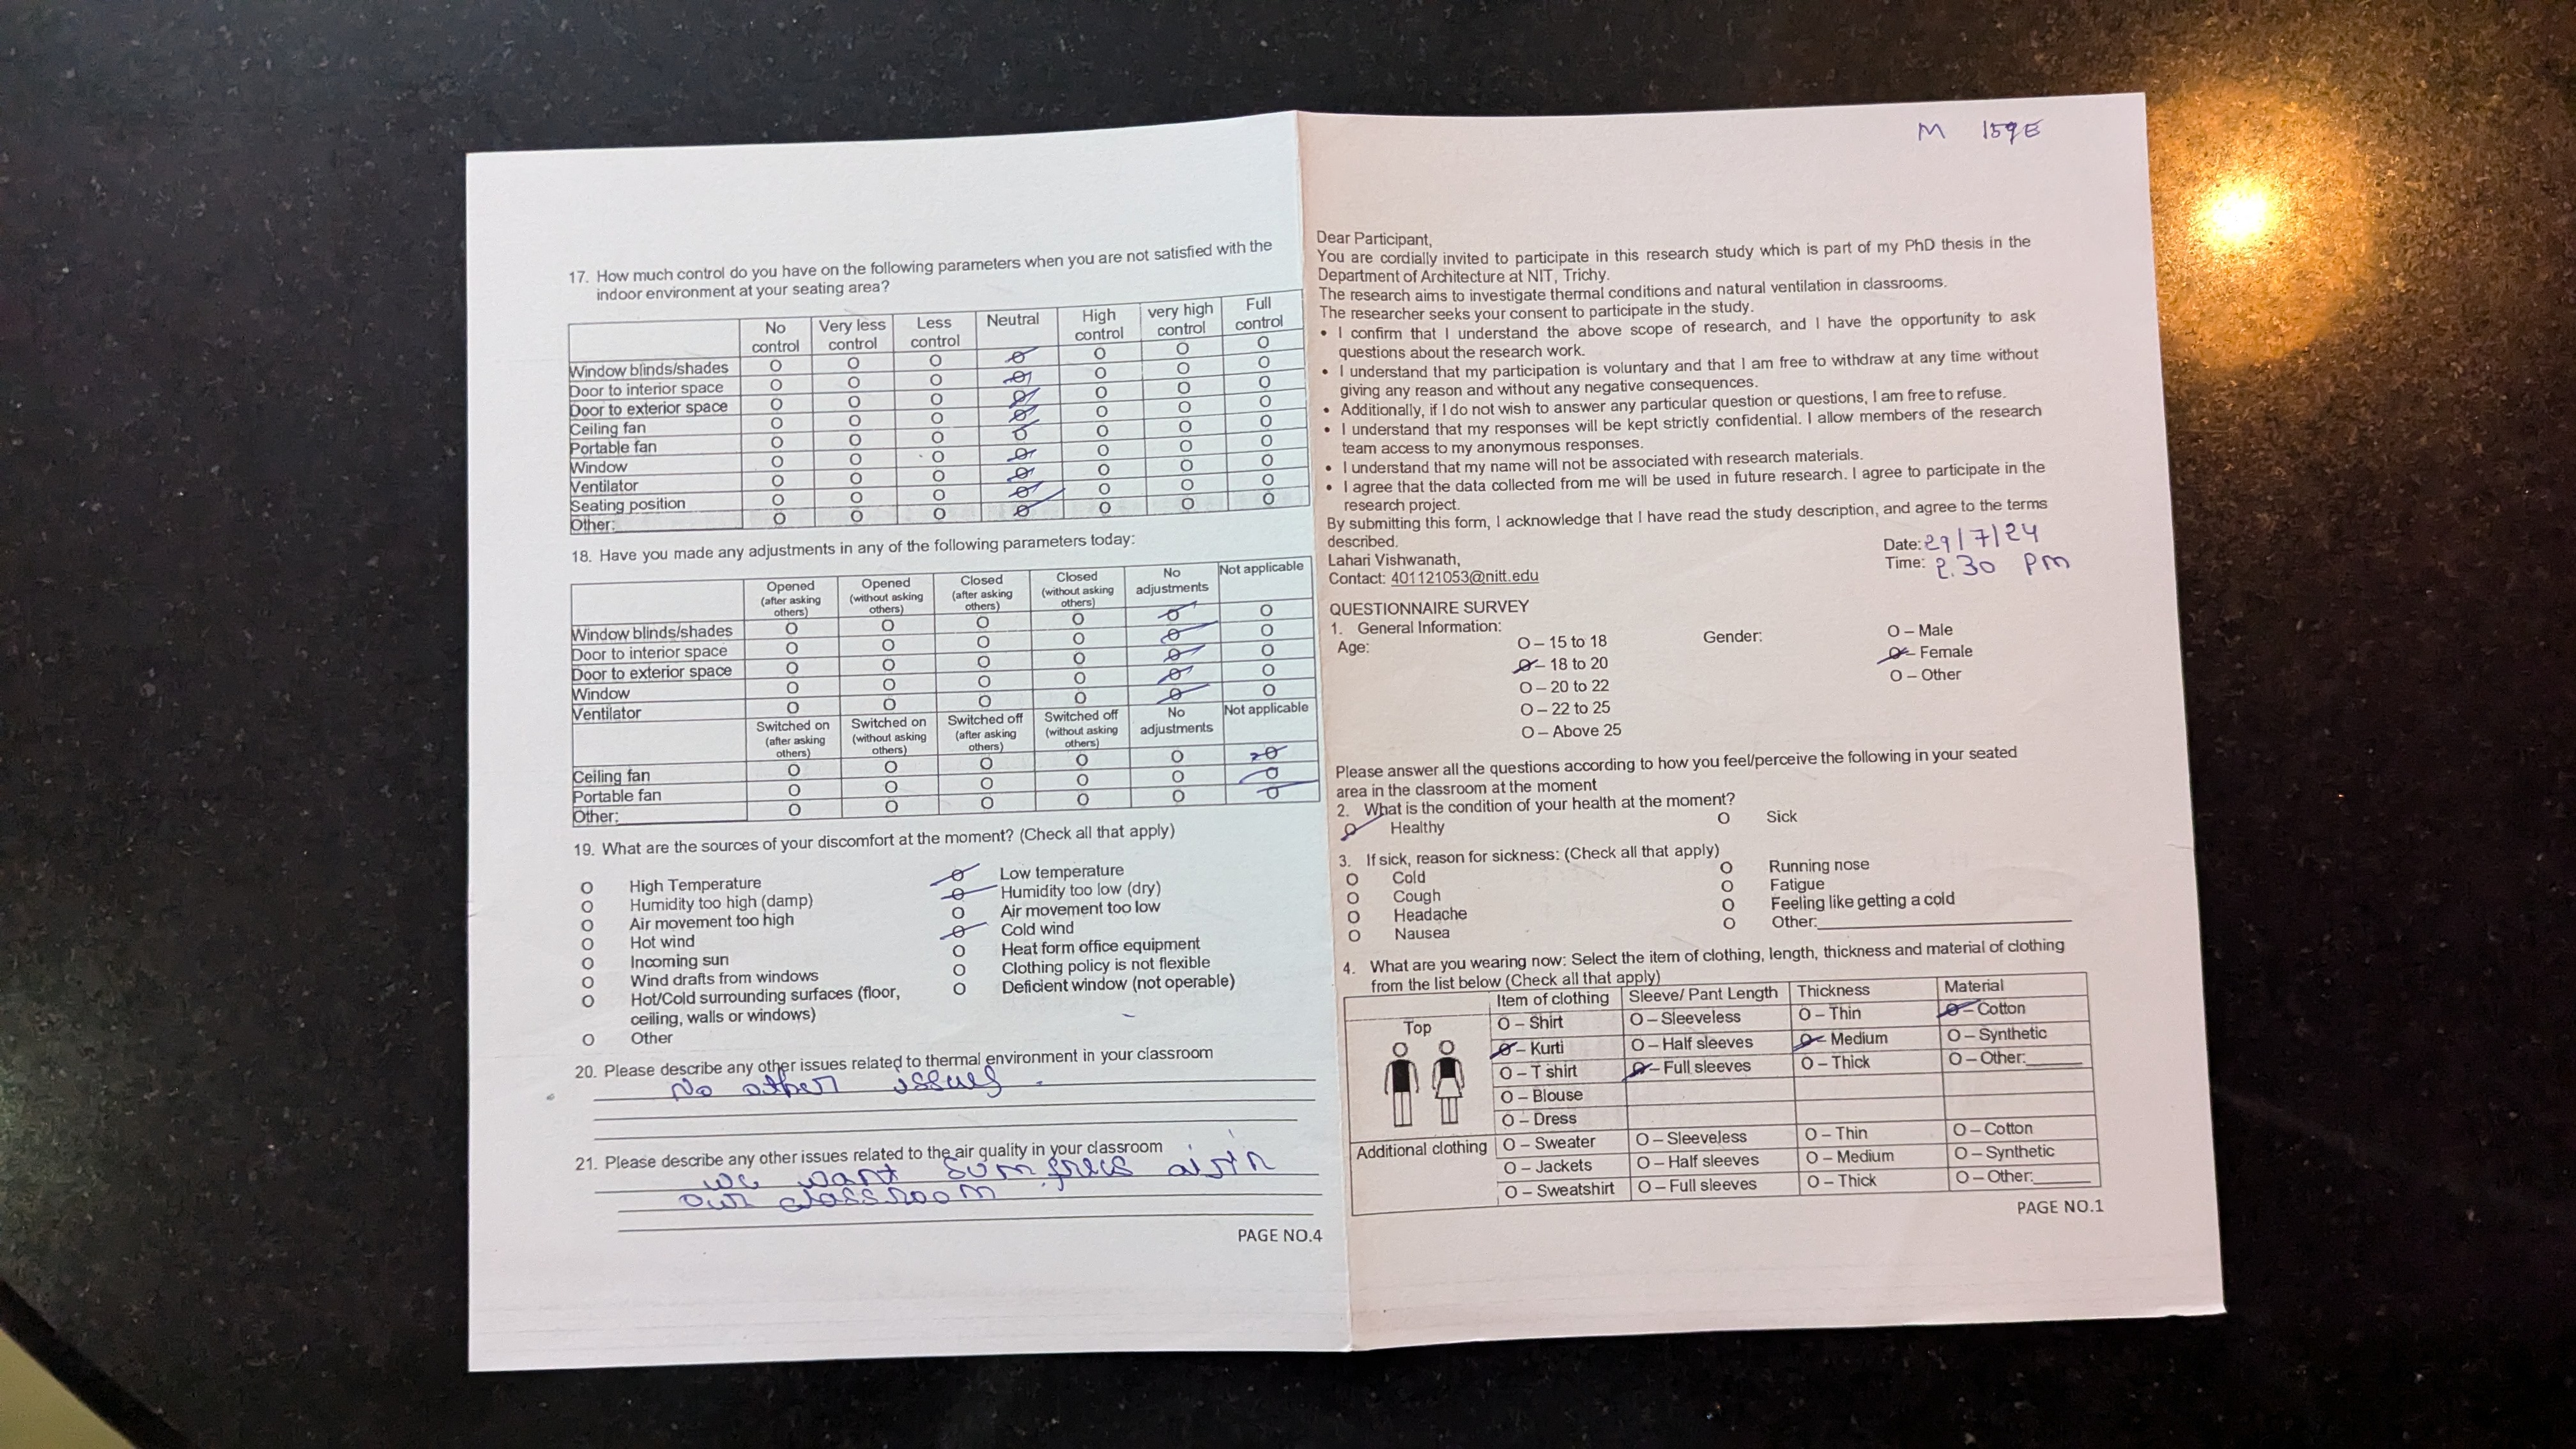 17. How much control do you have on the following parameters when you are not satisfied with the
indoor environment at your seating area?
No control Very less control Less control Neutral High control very high control Full control
Window blinds/shades O O O O O O O
Door to interior space O O O O O O O
Door to exterior space O O O O O O O
Ceiling fan O O O O O O O
Portable fan O O O O O O O
Window O O O O O O O
Ventilator O O O O O O O
Seating position O O O O O O O
Other: O O O O O O O
18. Have you made any adjustments in any of the following parameters today:
Opened (after asking others) Opened (without asking others) Closed (after asking others) Closed (without asking others) No adjustments Not applicable
Window blinds/shades O O O O O O
Door to interior space O O O O O O
Door to exterior space O O O O O O
Window O O O O O O
Ventilator O O O O O O
Switched on (after asking others) Switched on (without asking others) Switched off (after asking others) Switched off (without asking others) No adjustments Not applicable
Ceiling fan O O O O O O
Portable fan O O O O O O
Other: O O O O O O
19. What are the sources of your discomfort at the moment? (Check all that apply)
O High Temperature O Low temperature
O Humidity too high (damp) O Humidity too low (dry)
O Air movement too high O Air movement too low
O Hot wind O Cold wind
O Incoming sun O Heat form office equipment
O Wind drafts from windows O Clothing policy is not flexible
O Hot/Cold surrounding surfaces (floor, O Deficient window (not operable)
ceiling, walls or windows)
O Other
20. Please describe any other issues related to thermal environment in your classroom
No other issues.
21. Please describe any other issues related to the air quality in your classroom
we want air
our classroom
PAGE NO.4
M 159E
Dear Participant,
You are cordially invited to participate in this research study which is part of my PhD thesis in the
Department of Architecture at NIT, Trichy.
The research aims to investigate thermal conditions and natural ventilation in classrooms.
The researcher seeks your consent to participate in the study.
• I confirm that I understand the above scope of research, and I have the opportunity to ask
questions about the research work.
• I understand that my participation is voluntary and that I am free to withdraw at any time without
giving any reason and without any negative consequences.
• Additionally, if I do not wish to answer any particular question or questions, I am free to refuse.
• I understand that my responses will be kept strictly confidential. I allow members of the research
team access to my anonymous responses.
• I understand that my name will not be associated with research materials.
• I agree that the data collected from me will be used in future research. I agree to participate in the
research project.
By submitting this form, I acknowledge that I have read the study description, and agree to the terms
described.
Lahari Vishwanath,
Contact: 401121053@nitt.edu
Date: 29/7/24
Time: 2.30 PM
QUESTIONNAIRE SURVEY
1. General Information:
Age: O – 15 to 18 Gender: O – Male
O – 18 to 20 O – Female
O – 20 to 22 O – Other
O – 22 to 25
O – Above 25
Please answer all the questions according to how you feel/perceive the following in your seated
area in the classroom at the moment
2. What is the condition of your health at the moment?
O Healthy O Sick
3. If sick, reason for sickness: (Check all that apply)
O Cold O Running nose
O Cough O Fatigue
O Headache O Feeling like getting a cold
O Nausea O Other:
4. What are you wearing now: Select the item of clothing, length, thickness and material of clothing
from the list below (Check all that apply)
Item of clothing Sleeve/ Pant Length Thickness Material
Top O – Shirt O – Sleeveless O – Thin O – Cotton
O – Kurti O – Half sleeves O – Medium O – Synthetic
O – T shirt O – Full sleeves O – Thick O – Other:
O – Blouse
O – Dress
Additional clothing O – Sweater O – Sleeveless O – Thin O – Cotton
O – Jackets O – Half sleeves O – Medium O – Synthetic
O – Sweatshirt O – Full sleeves O – Thick O – Other:
PAGE NO.1